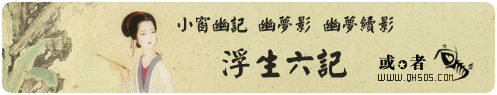 小窗幽記 幽夢影 幽夢續影
浮生六記
或者
WWW.QHSOS.COM